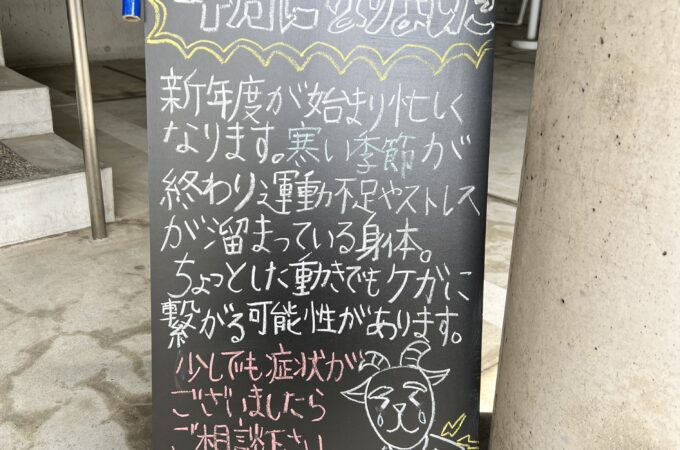 4月になりました
新年度が始まり忙しく
なります。寒い季節が
終わり、運動不足やストレス
が溜まっている身体。
ちょっとした動きでもケガに
繋がる可能性があります。
少しでも症状が
ございましたら
ご相談下さい